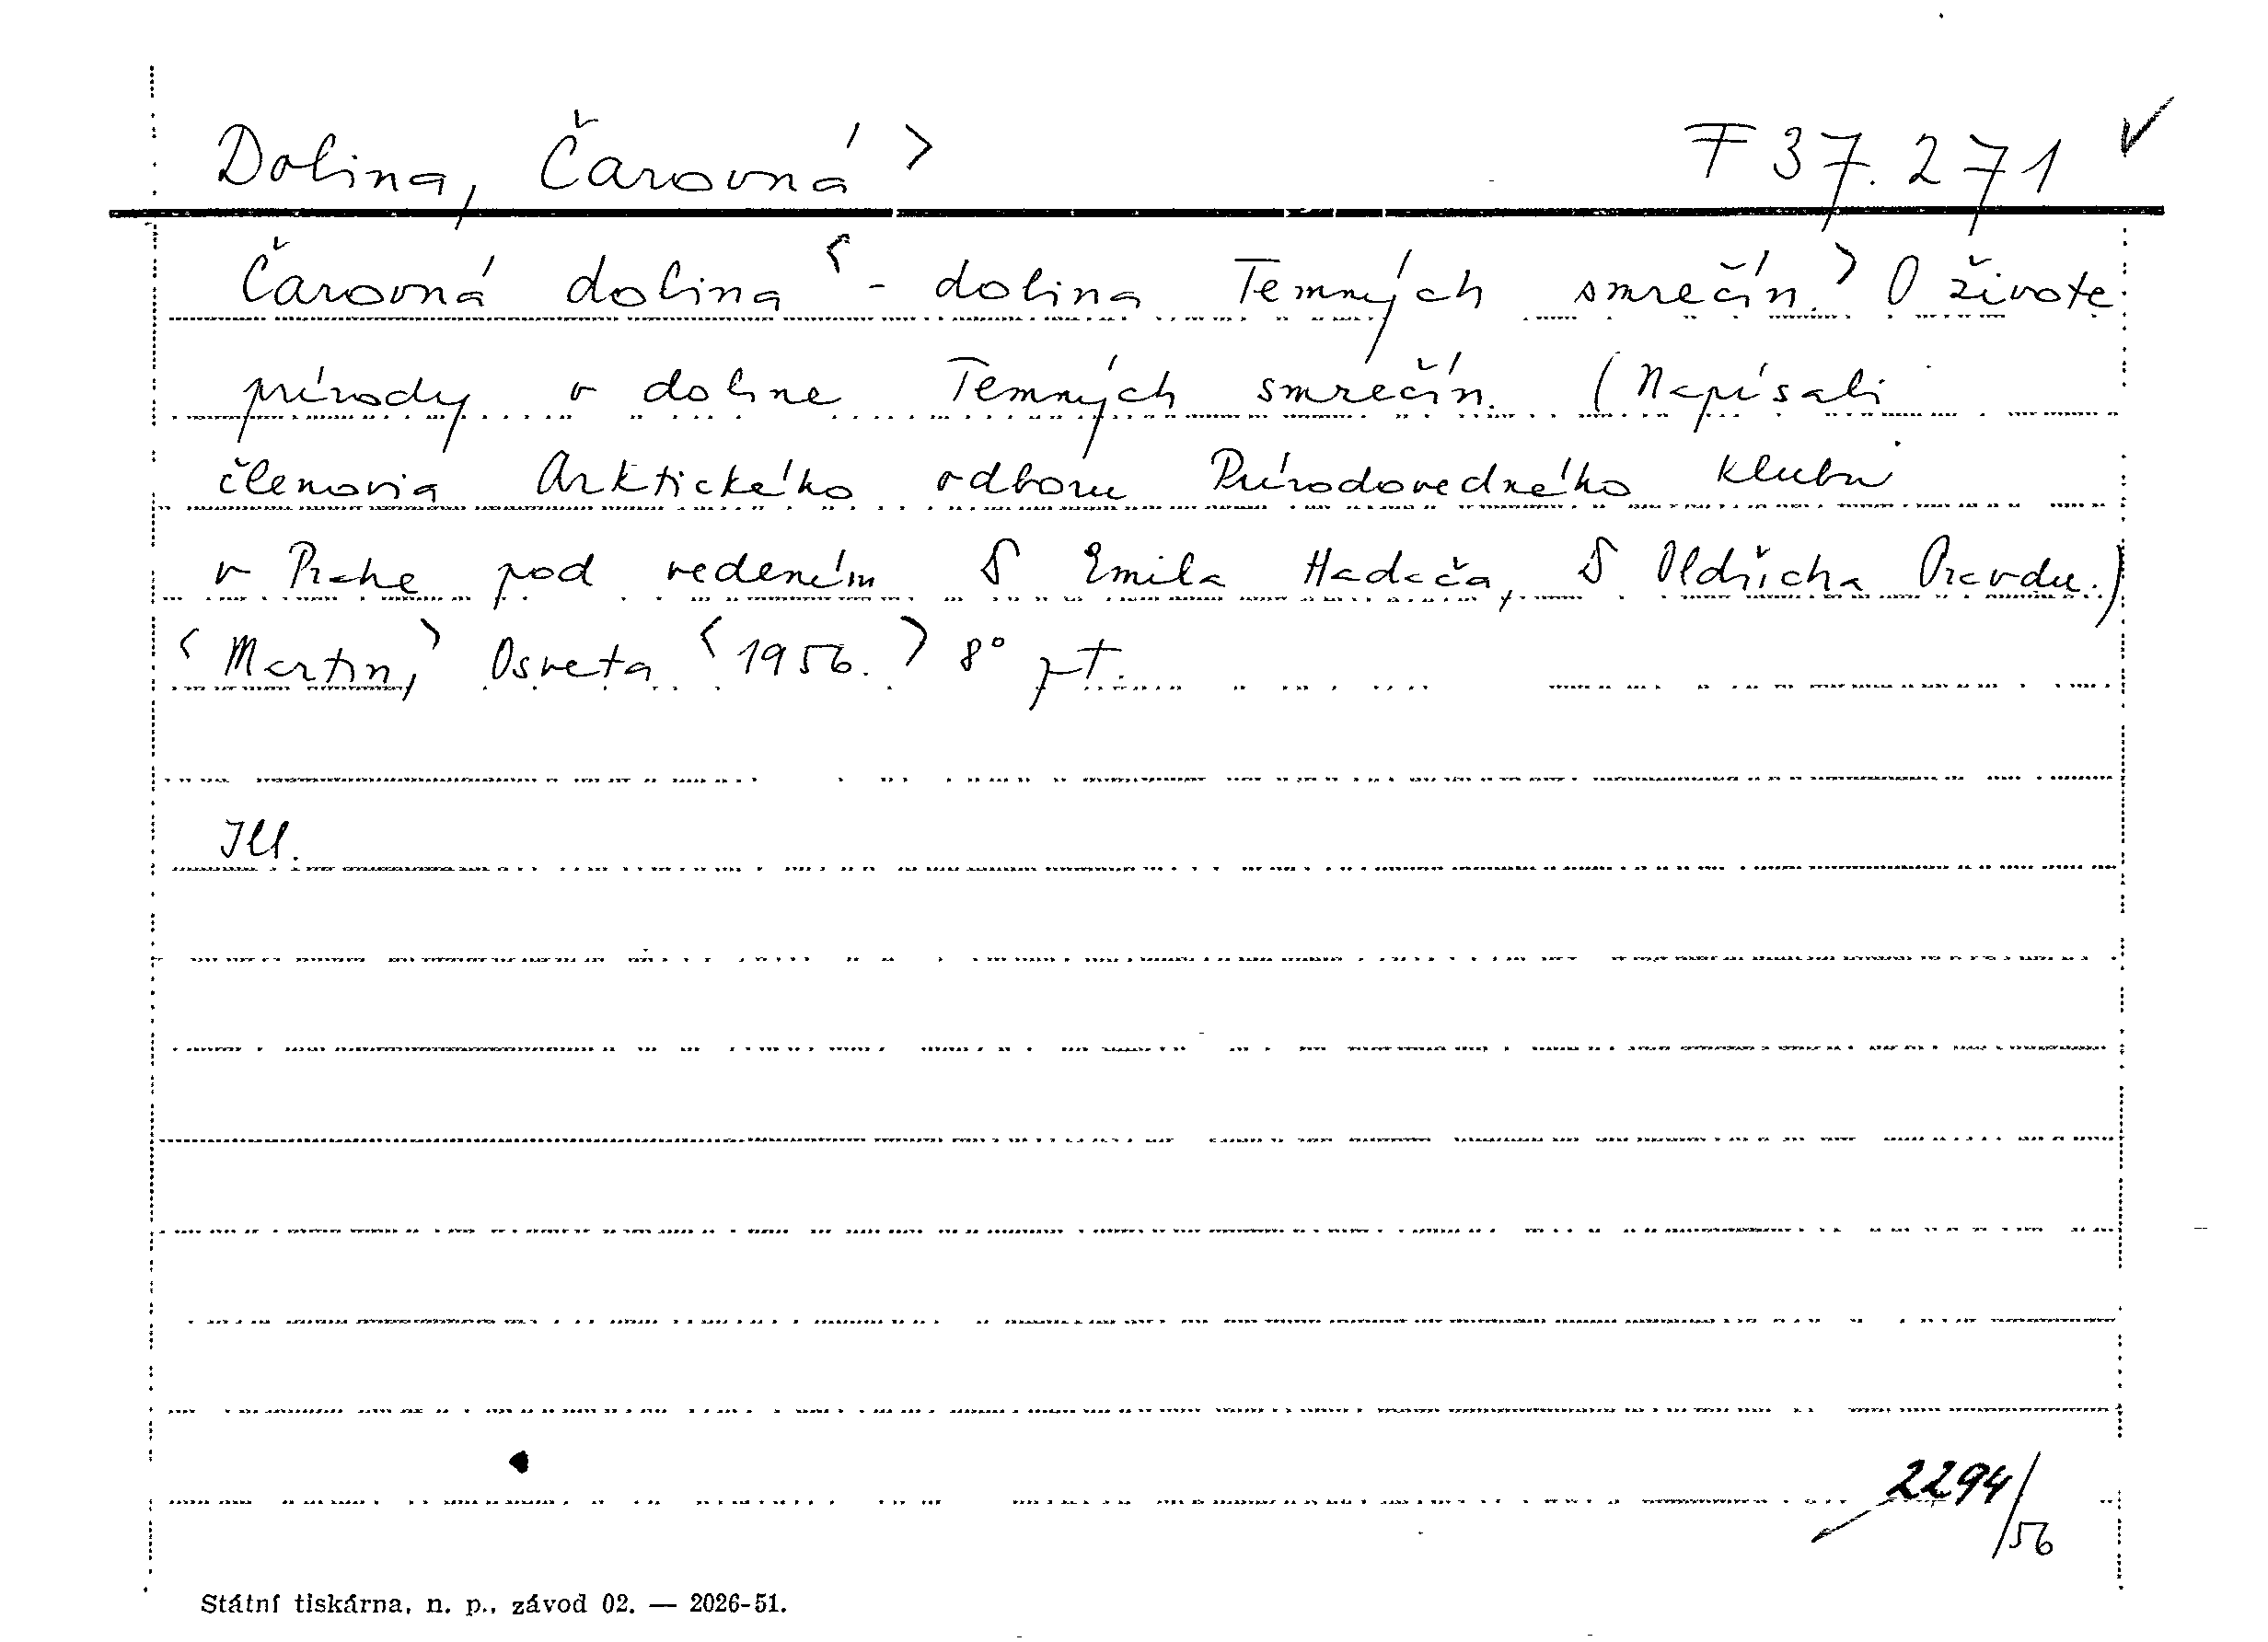 Dolina, Čarovná > F 37.271 ✓
Čarovná dolina < - dolina Temných smrečín. > O živote
prírody v doline Temných smrečín. (Napísali
členovia Arktického odboru Prírodovedného klubu
v Prahe pod vedením D Emila Hadača, D Oldřicha Pravdu.)
< Martin, > Osveta < 1956. > 8° pt.
Ill.
2294/56
Státní tiskárna, n. p., závod 02. — 2026-51.